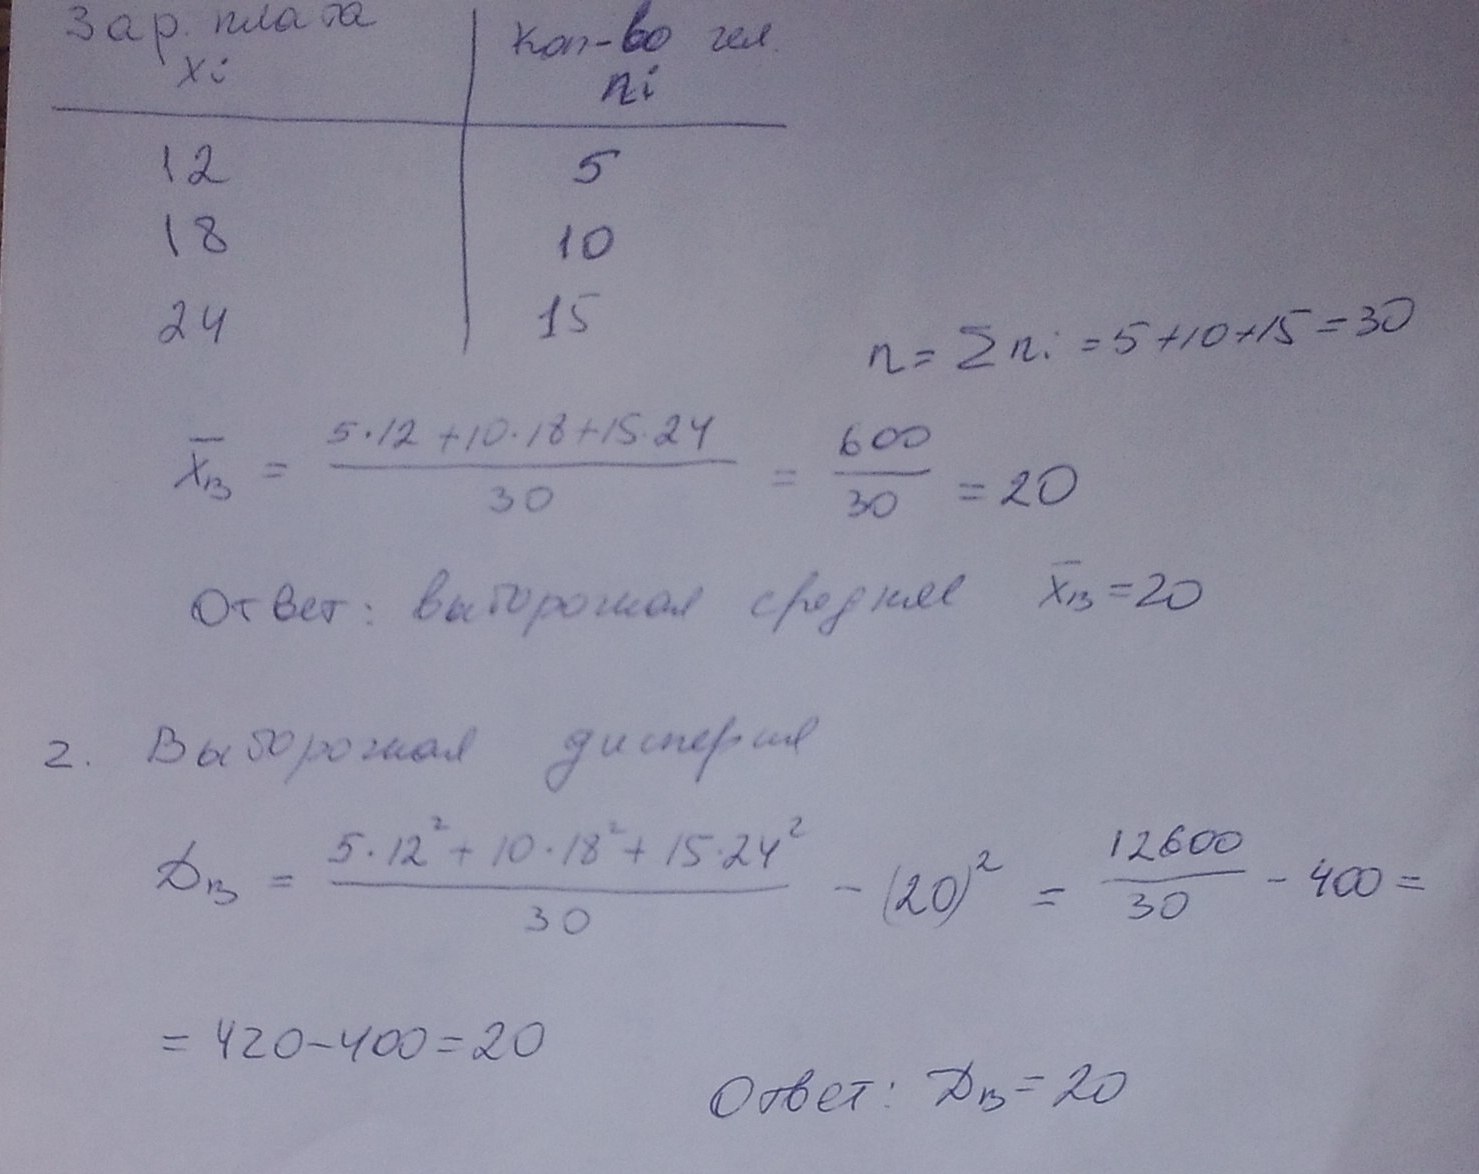 Зар. плата Кол-во чел.
xi ni
12 5
18 10
24 15
n = Σni = 5+10+15 = 30
x̄в = (5·12+10·18+15·24)/30 = 600/30 = 20
Ответ: выборочная средняя x̄в = 20
2. Выборочная дисперсия
Дв = (5·12²+10·18²+15·24²)/30 - (20)² = 12600/30 - 400 =
= 420-400 = 20
Ответ: Дв = 20